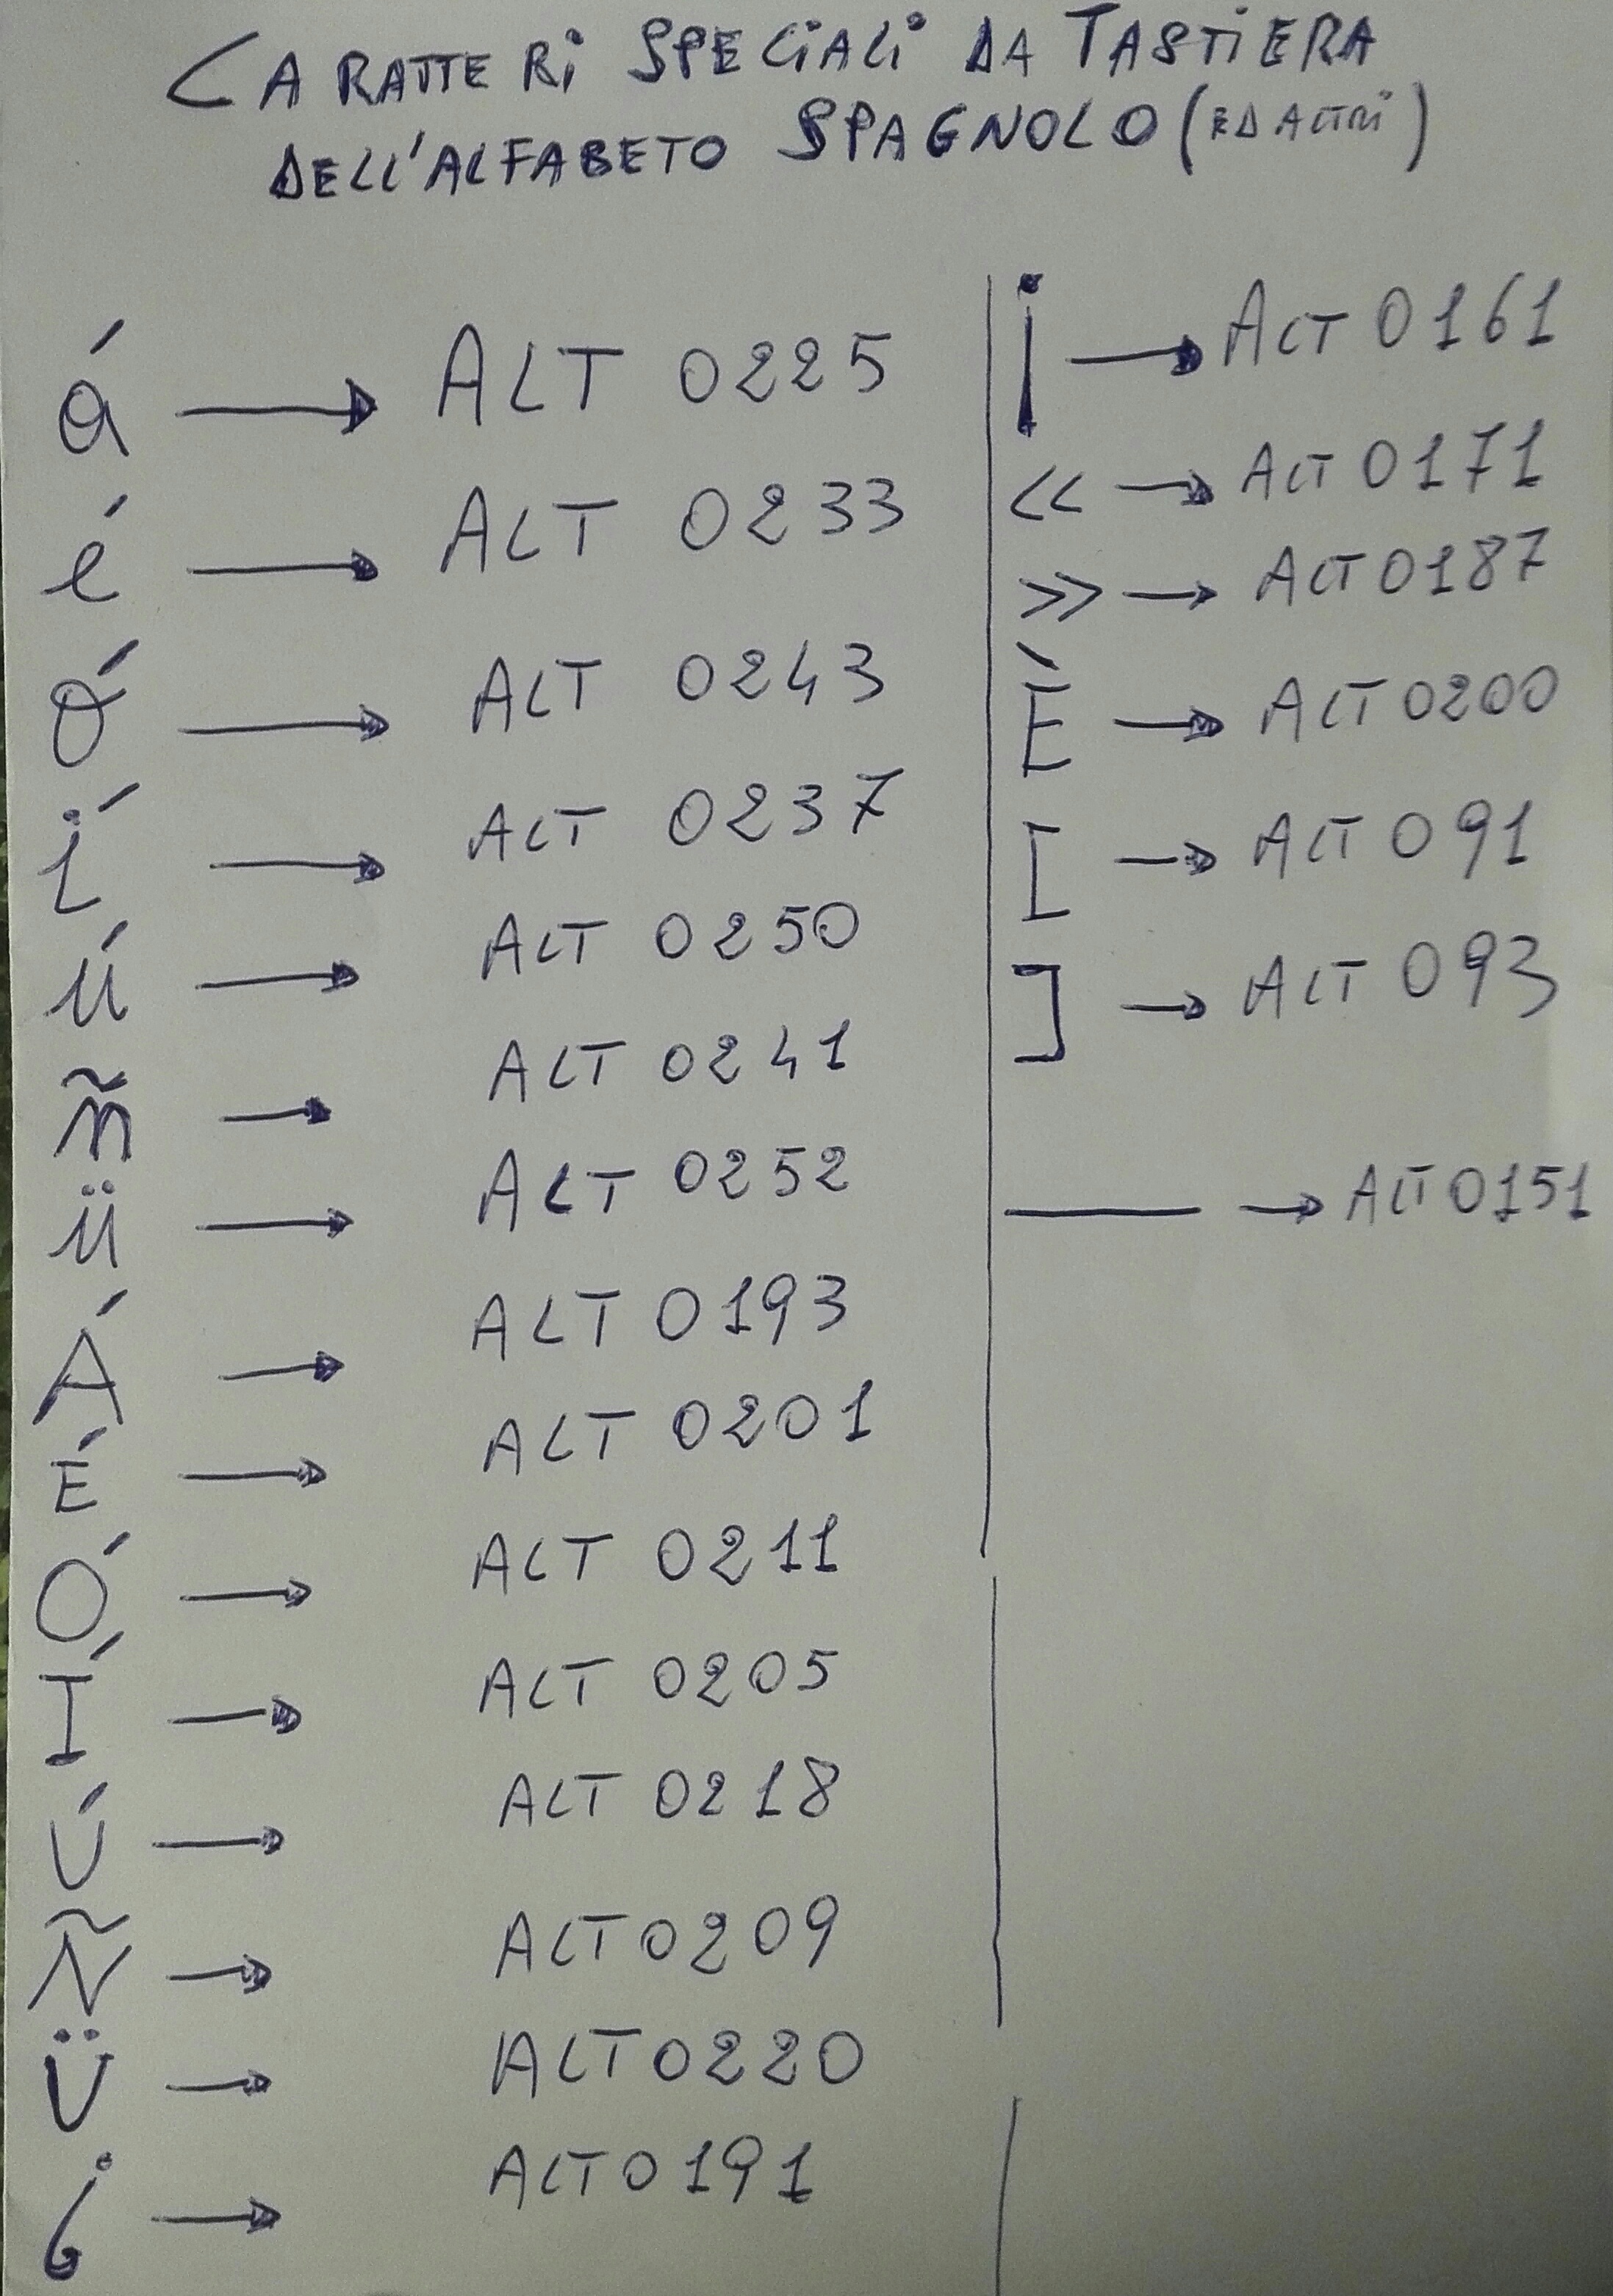 CARATTERI SPECIALI DA TASTIERA
DELL'ALFABETO SPAGNOLO (ED ALTRI)
á → ALT 0225
é → ALT 0233
ó → ALT 0243
í → ALT 0237
ú → ALT 0250
ñ → ALT 0241
ü → ALT 0252
Á → ALT 0193
É → ALT 0201
Ó → ALT 0211
Í → ALT 0205
Ú → ALT 0218
Ñ → ALT 0209
Ü → ALT 0220
¿ → ALT 0191
¡ → ALT 0161
<< → ALT 0171
>> → ALT 0187
È → ALT 0200
[ → ALT 091
] → ALT 093
— → ALT 0151